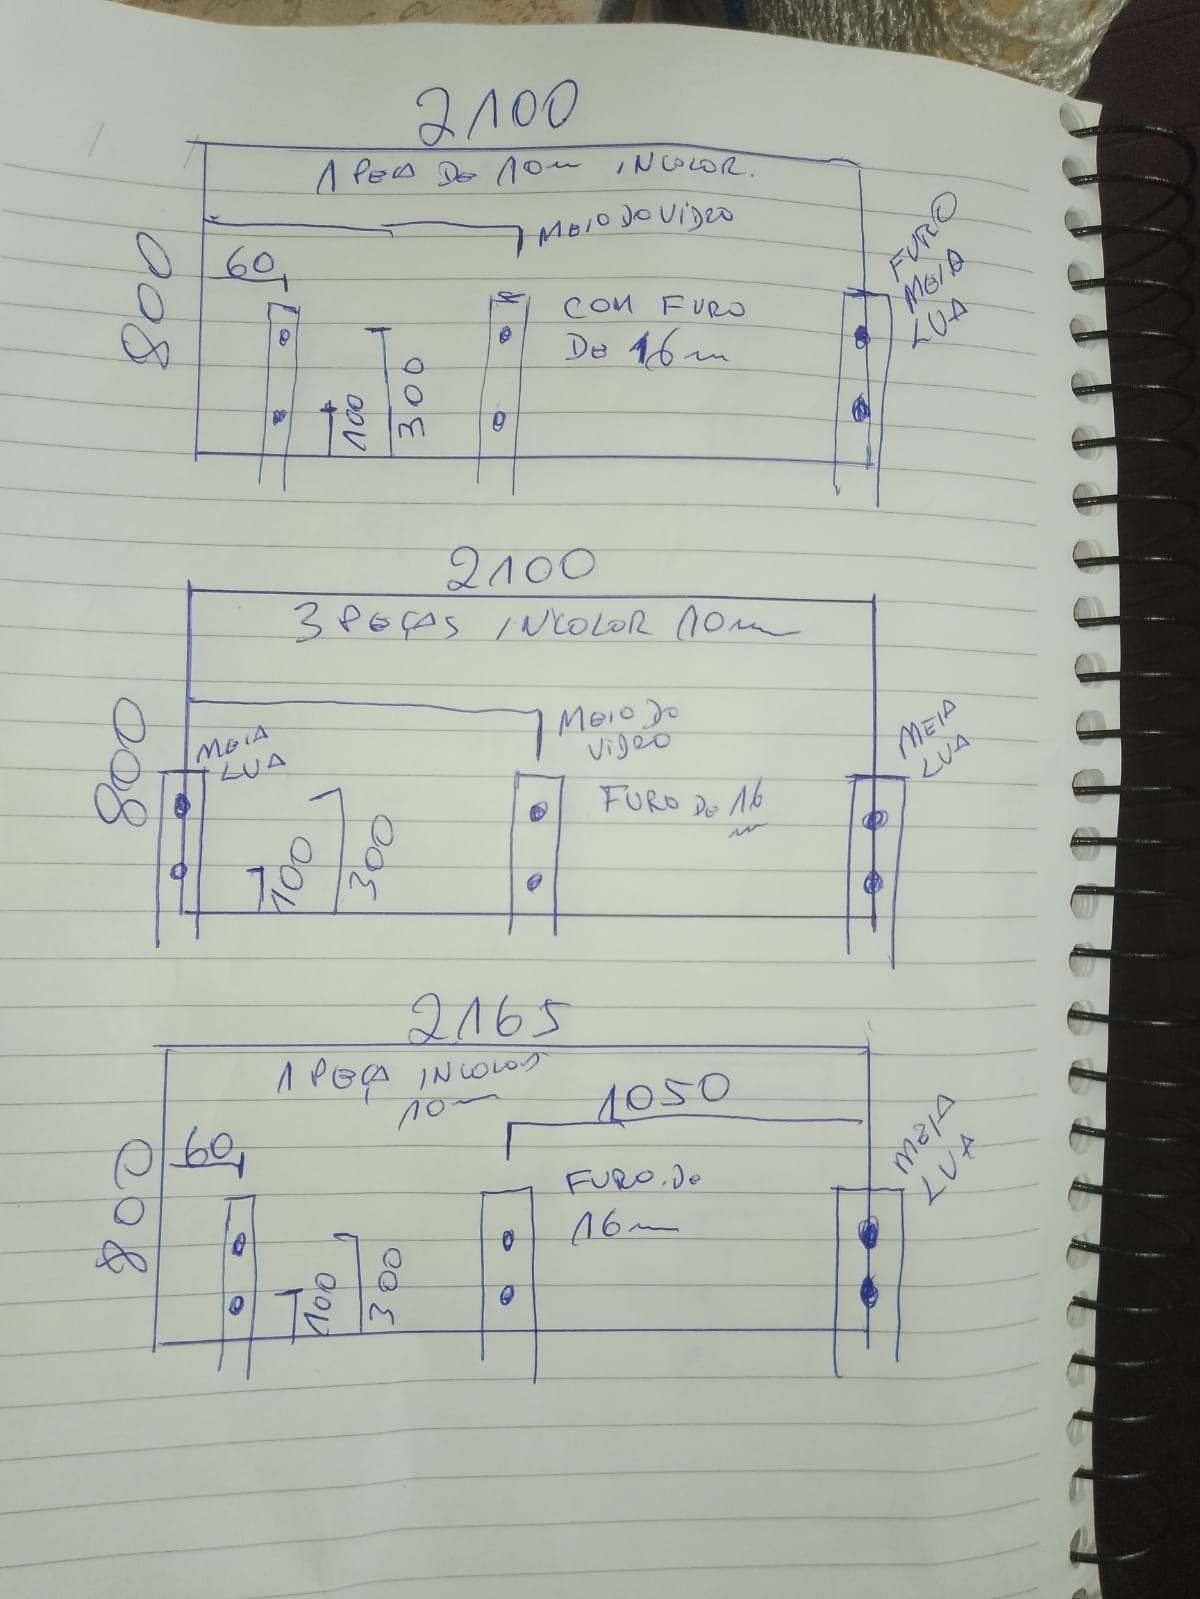 2100
1 PEÇA DE 10m INCOLOR.
MEIO DO VIDRO
60
800
FURO
MEIA
LUA
COM FURO
DE 16m
100
300
2100
3 PEÇAS INCOLOR 10m
MEIO DO
VIDRO
MEIA
LUA
MEIA
LUA
800
FURO DE 16
m
100
300
2165
1 PEÇA INCOLOR
10m
1050
60
800
MEIA
LUA
FURO. DE
16m
100
300